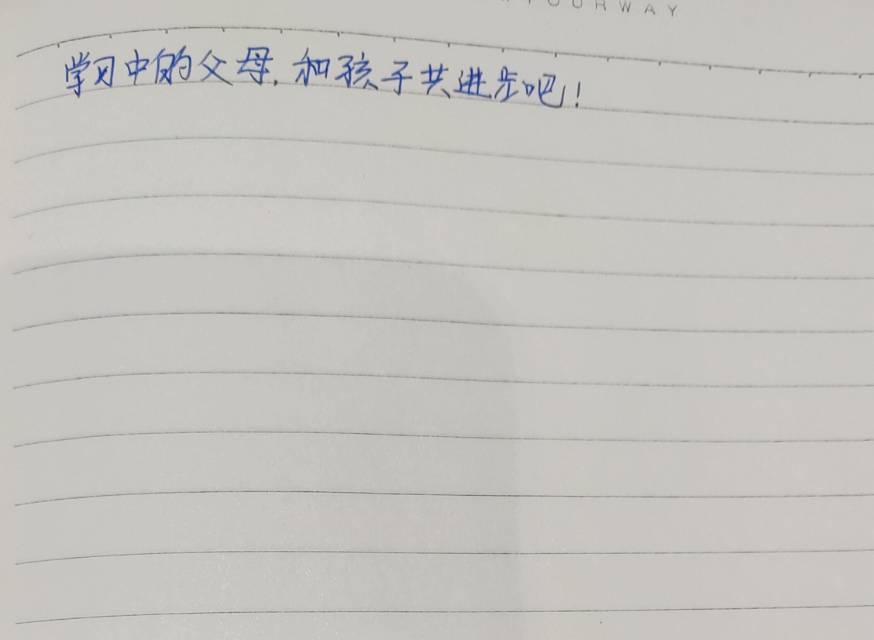 学习中的父母,和孩子共进步吧!